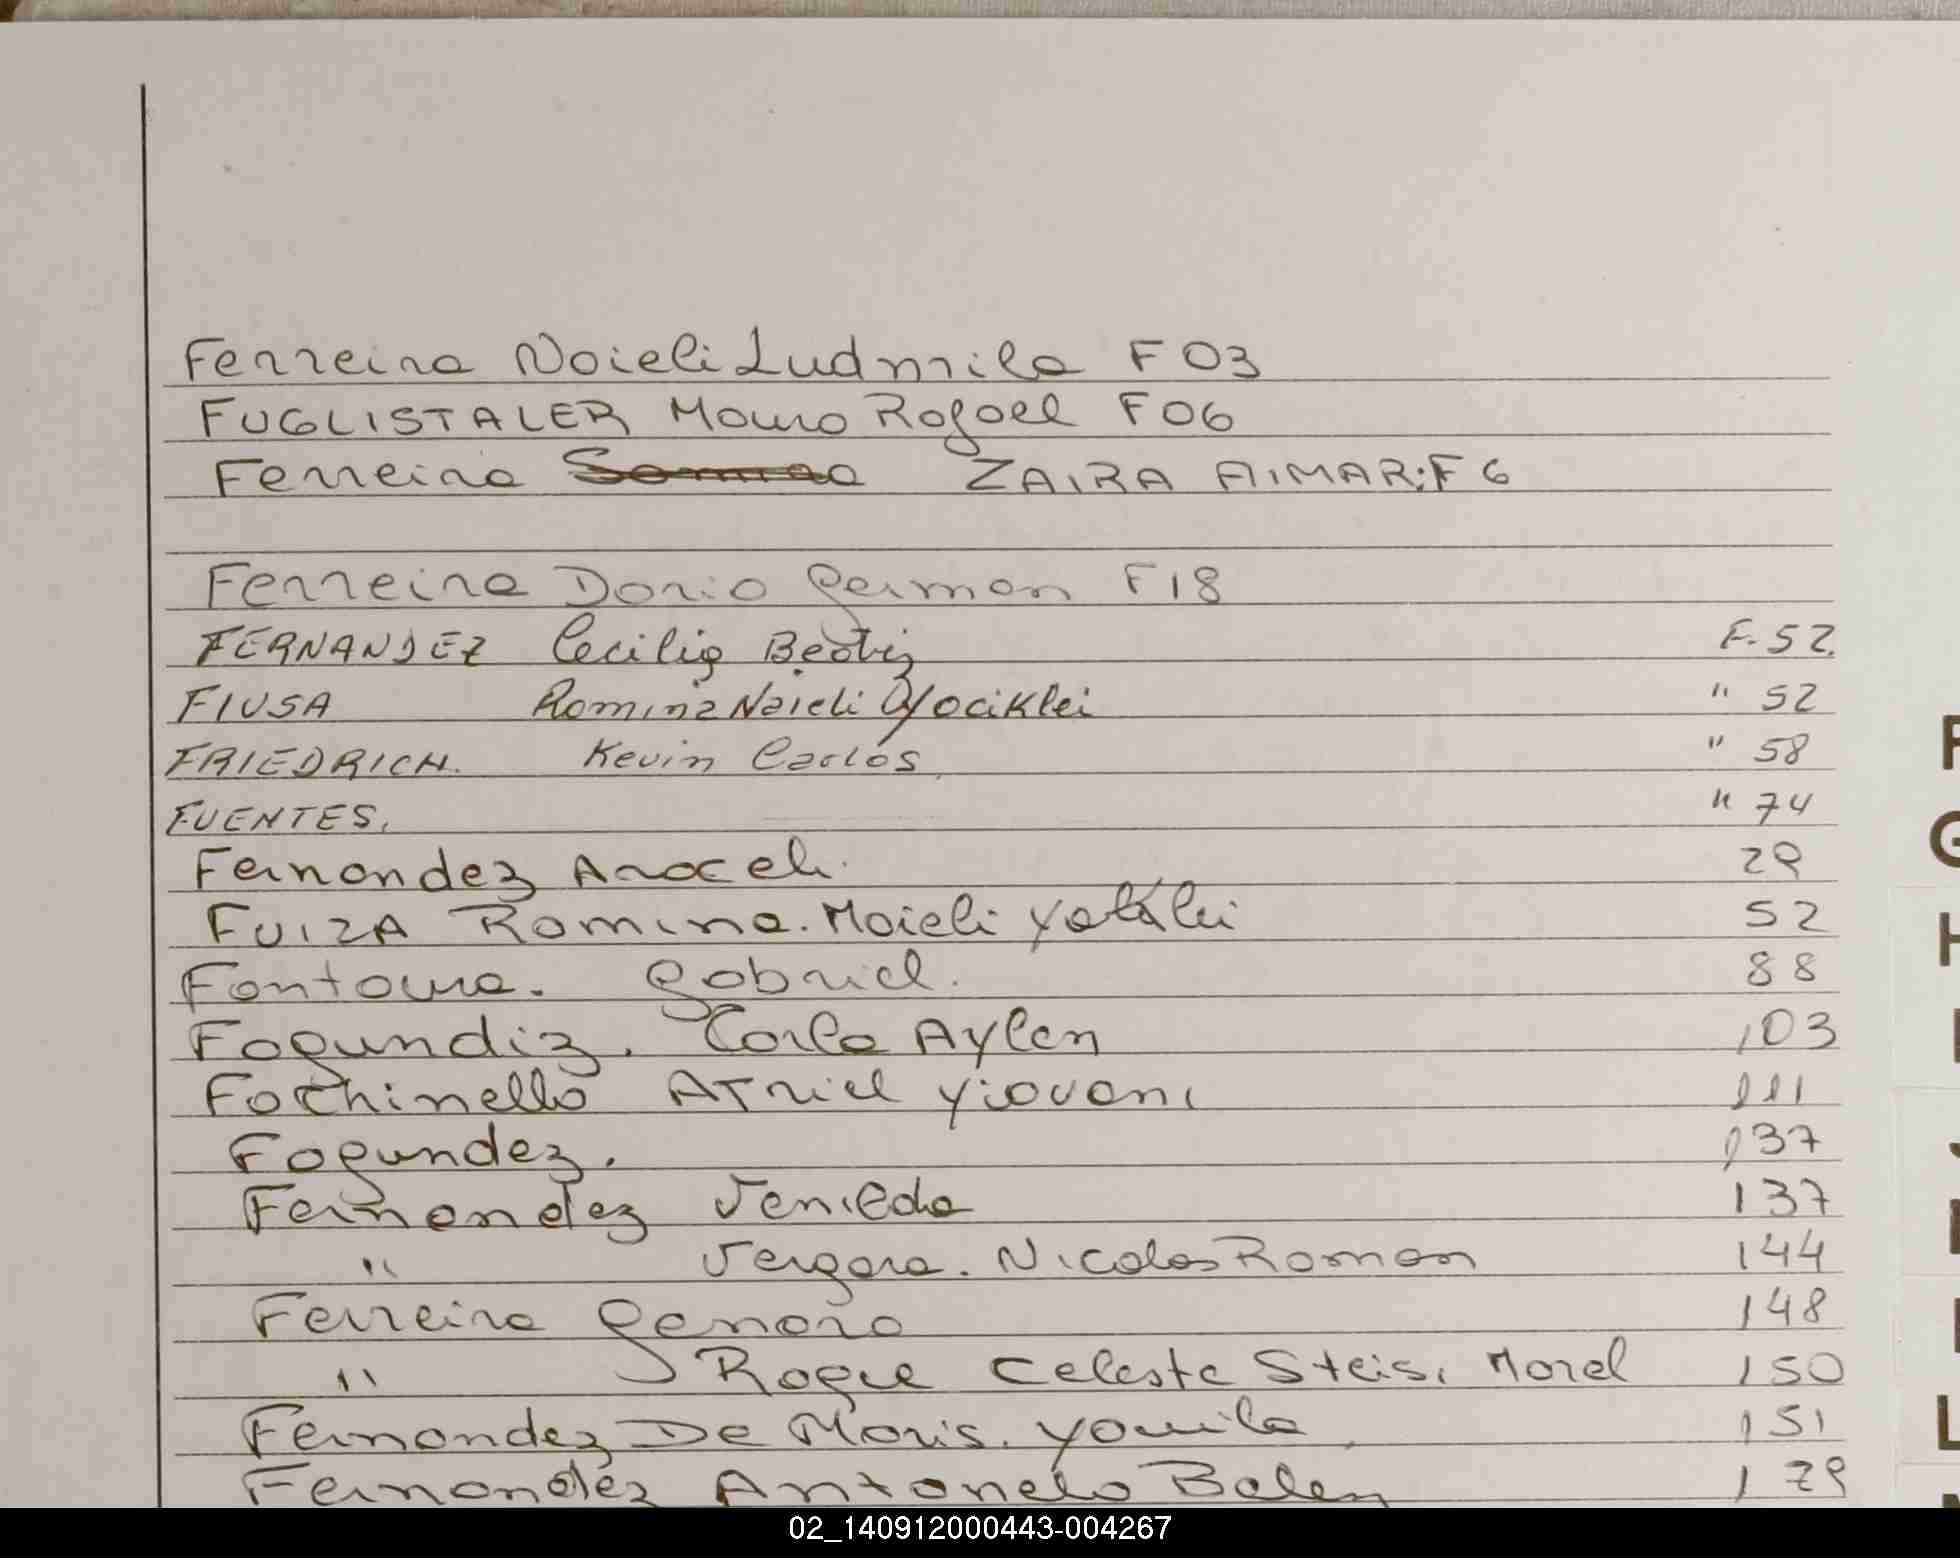 Ferreira Naieli Ludmila F 03
FUGLISTALER Mauro Rafael F 06
Ferreira ZAIRA AIMAR: F 6
Ferreira Dario German F 18
FERNANDEZ Cecilia Beatriz F. 52.
FIUSA Romina Naieli Yociklei " 52
FRIEDRICH. Kevin Carlos. " 58
FUENTES. " 74
Fernandez Araceli. 29
FUIZA Romina. Naieli 52
Fontoura. Gabriel. 88
Fagundiz. Carla Aylen 103
Fachinello ATriel Yiovani 111
Fagundez. 137
Fernandez 137
" Vergara. Nicolas Roman 144
Ferreira Genaro 148
" Roque Celeste Morel 150
Fernandez De Moris. Yamila 151
Fernandez Antonela Belen 179
F
G
H
L
02_140912000443-004267